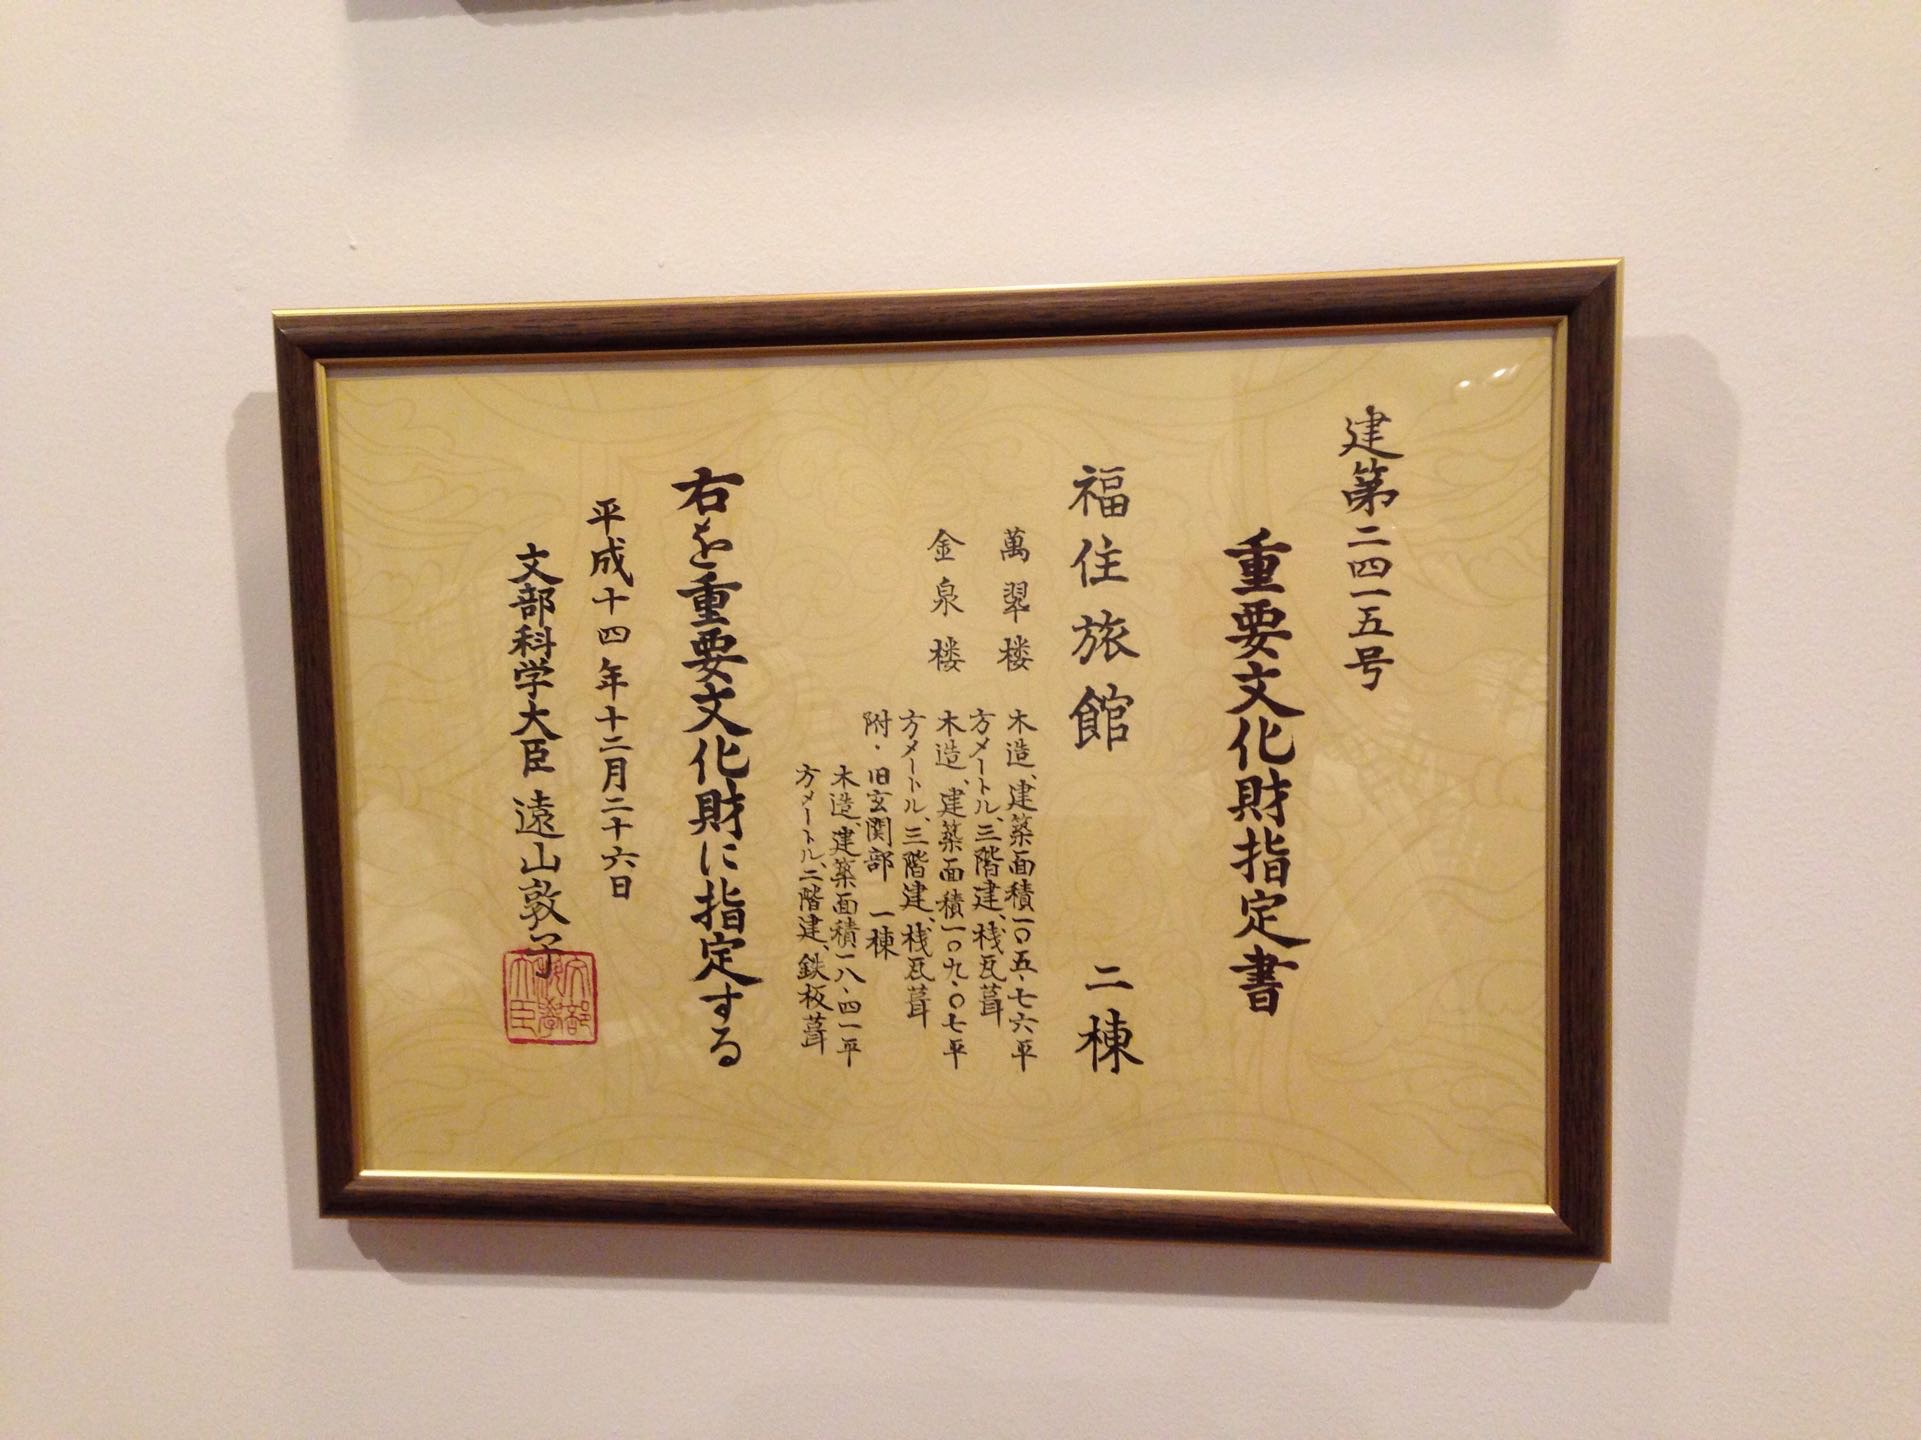 建第二四一五号
重要文化財指定書
福住旅館 二棟
萬翠楼 木造、建築面積一〇五・七六平
方メートル、三階建、桟瓦葺
金泉楼 木造、建築面積一〇九・〇七平
方メートル、三階建、桟瓦葺
附・旧玄関部 一棟
木造、建築面積一八・四一平
方メートル、二階建、鉄板葺
右を重要文化財に指定する
平成十四年十二月二十六日
文部科学大臣 遠山敦子
文部科学大臣